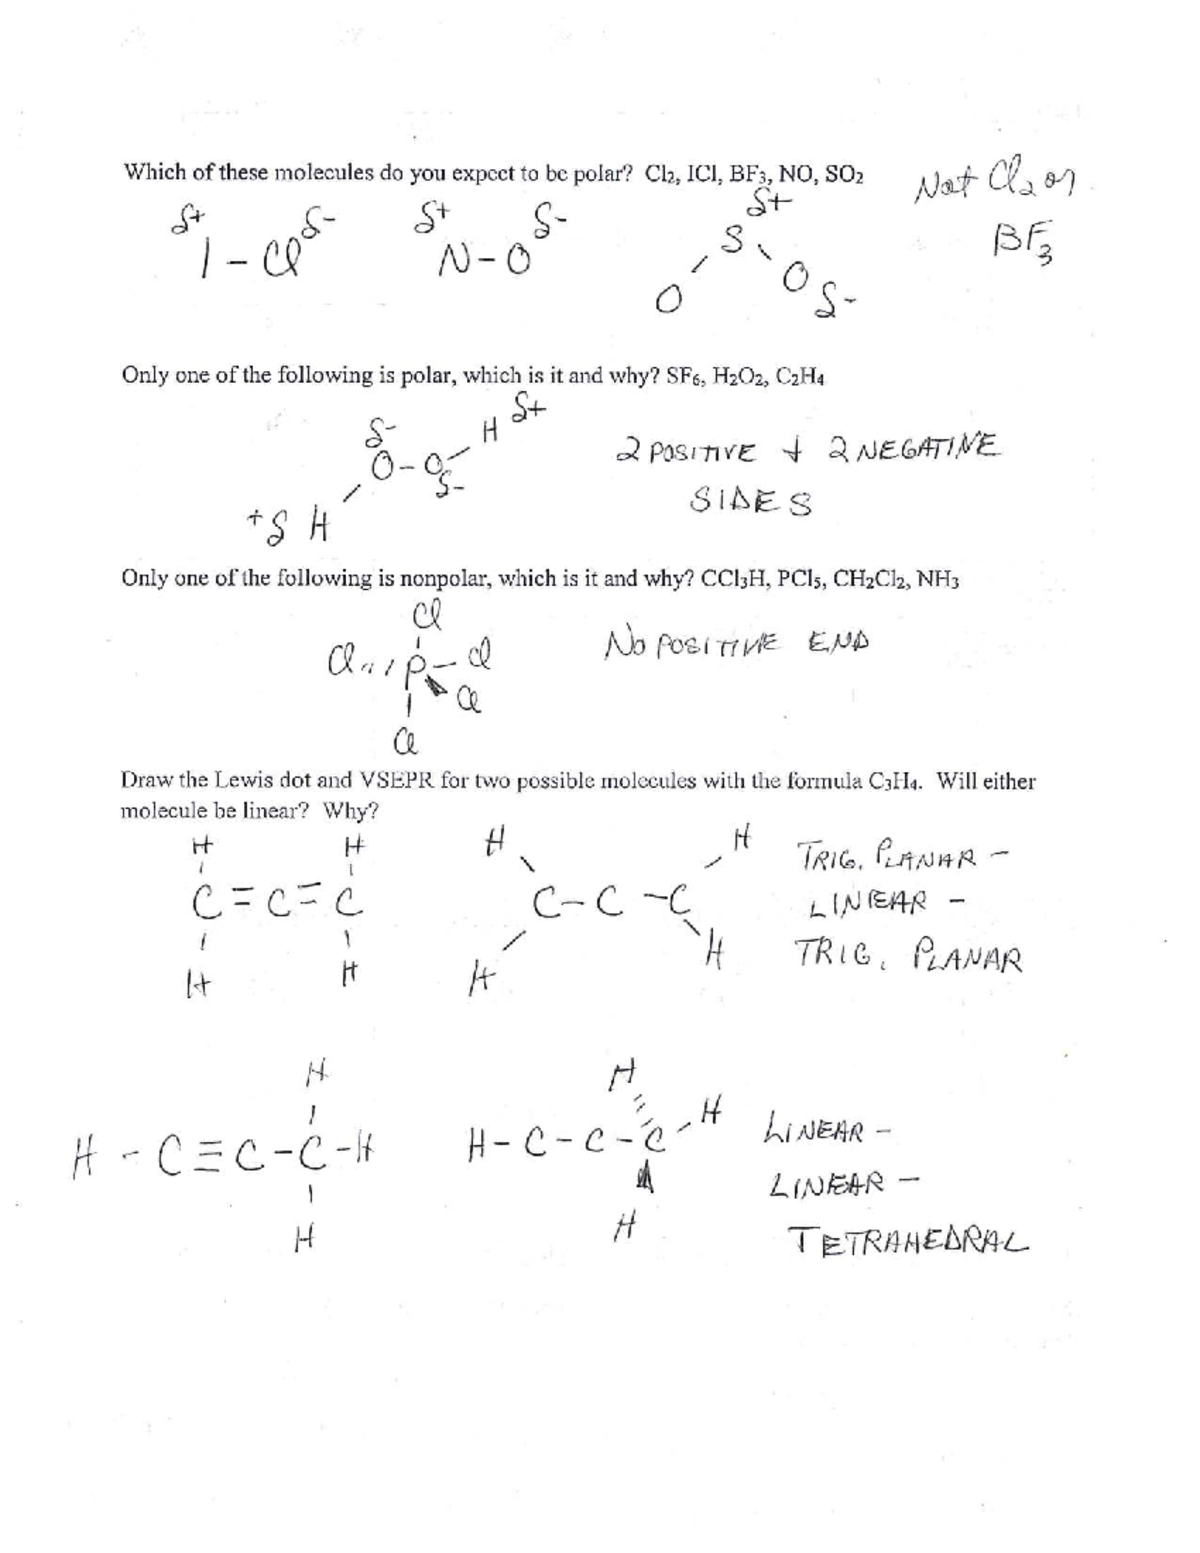 Which of these molecules do you expect to be polar? Cl₂, ICl, BF₃, NO, SO₂
Not Cl₂ or
BF₃
δ+ δ- δ+ δ- δ+
I - Cl N - O S
O O δ-
Only one of the following is polar, which is it and why? SF₆, H₂O₂, C₂H₄
δ- H δ+
O - O δ-
+δ H
2 POSITIVE + 2 NEGATIVE
SIDES
Only one of the following is nonpolar, which is it and why? CCl₃H, PCl₅, CH₂Cl₂, NH₃
Cl
Cl P - Cl
Cl
Cl
NO POSITIVE END
Draw the Lewis dot and VSEPR for two possible molecules with the formula C₃H₄. Will either
molecule be linear? Why?
H H H H
C = C = C C - C - C
H H H H
TRIG. PLANAR -
LINEAR -
TRIG. PLANAR
H H
H - C ≡ C - C - H H - C - C - C - H
H H
LINEAR -
LINEAR -
TETRAHEDRAL